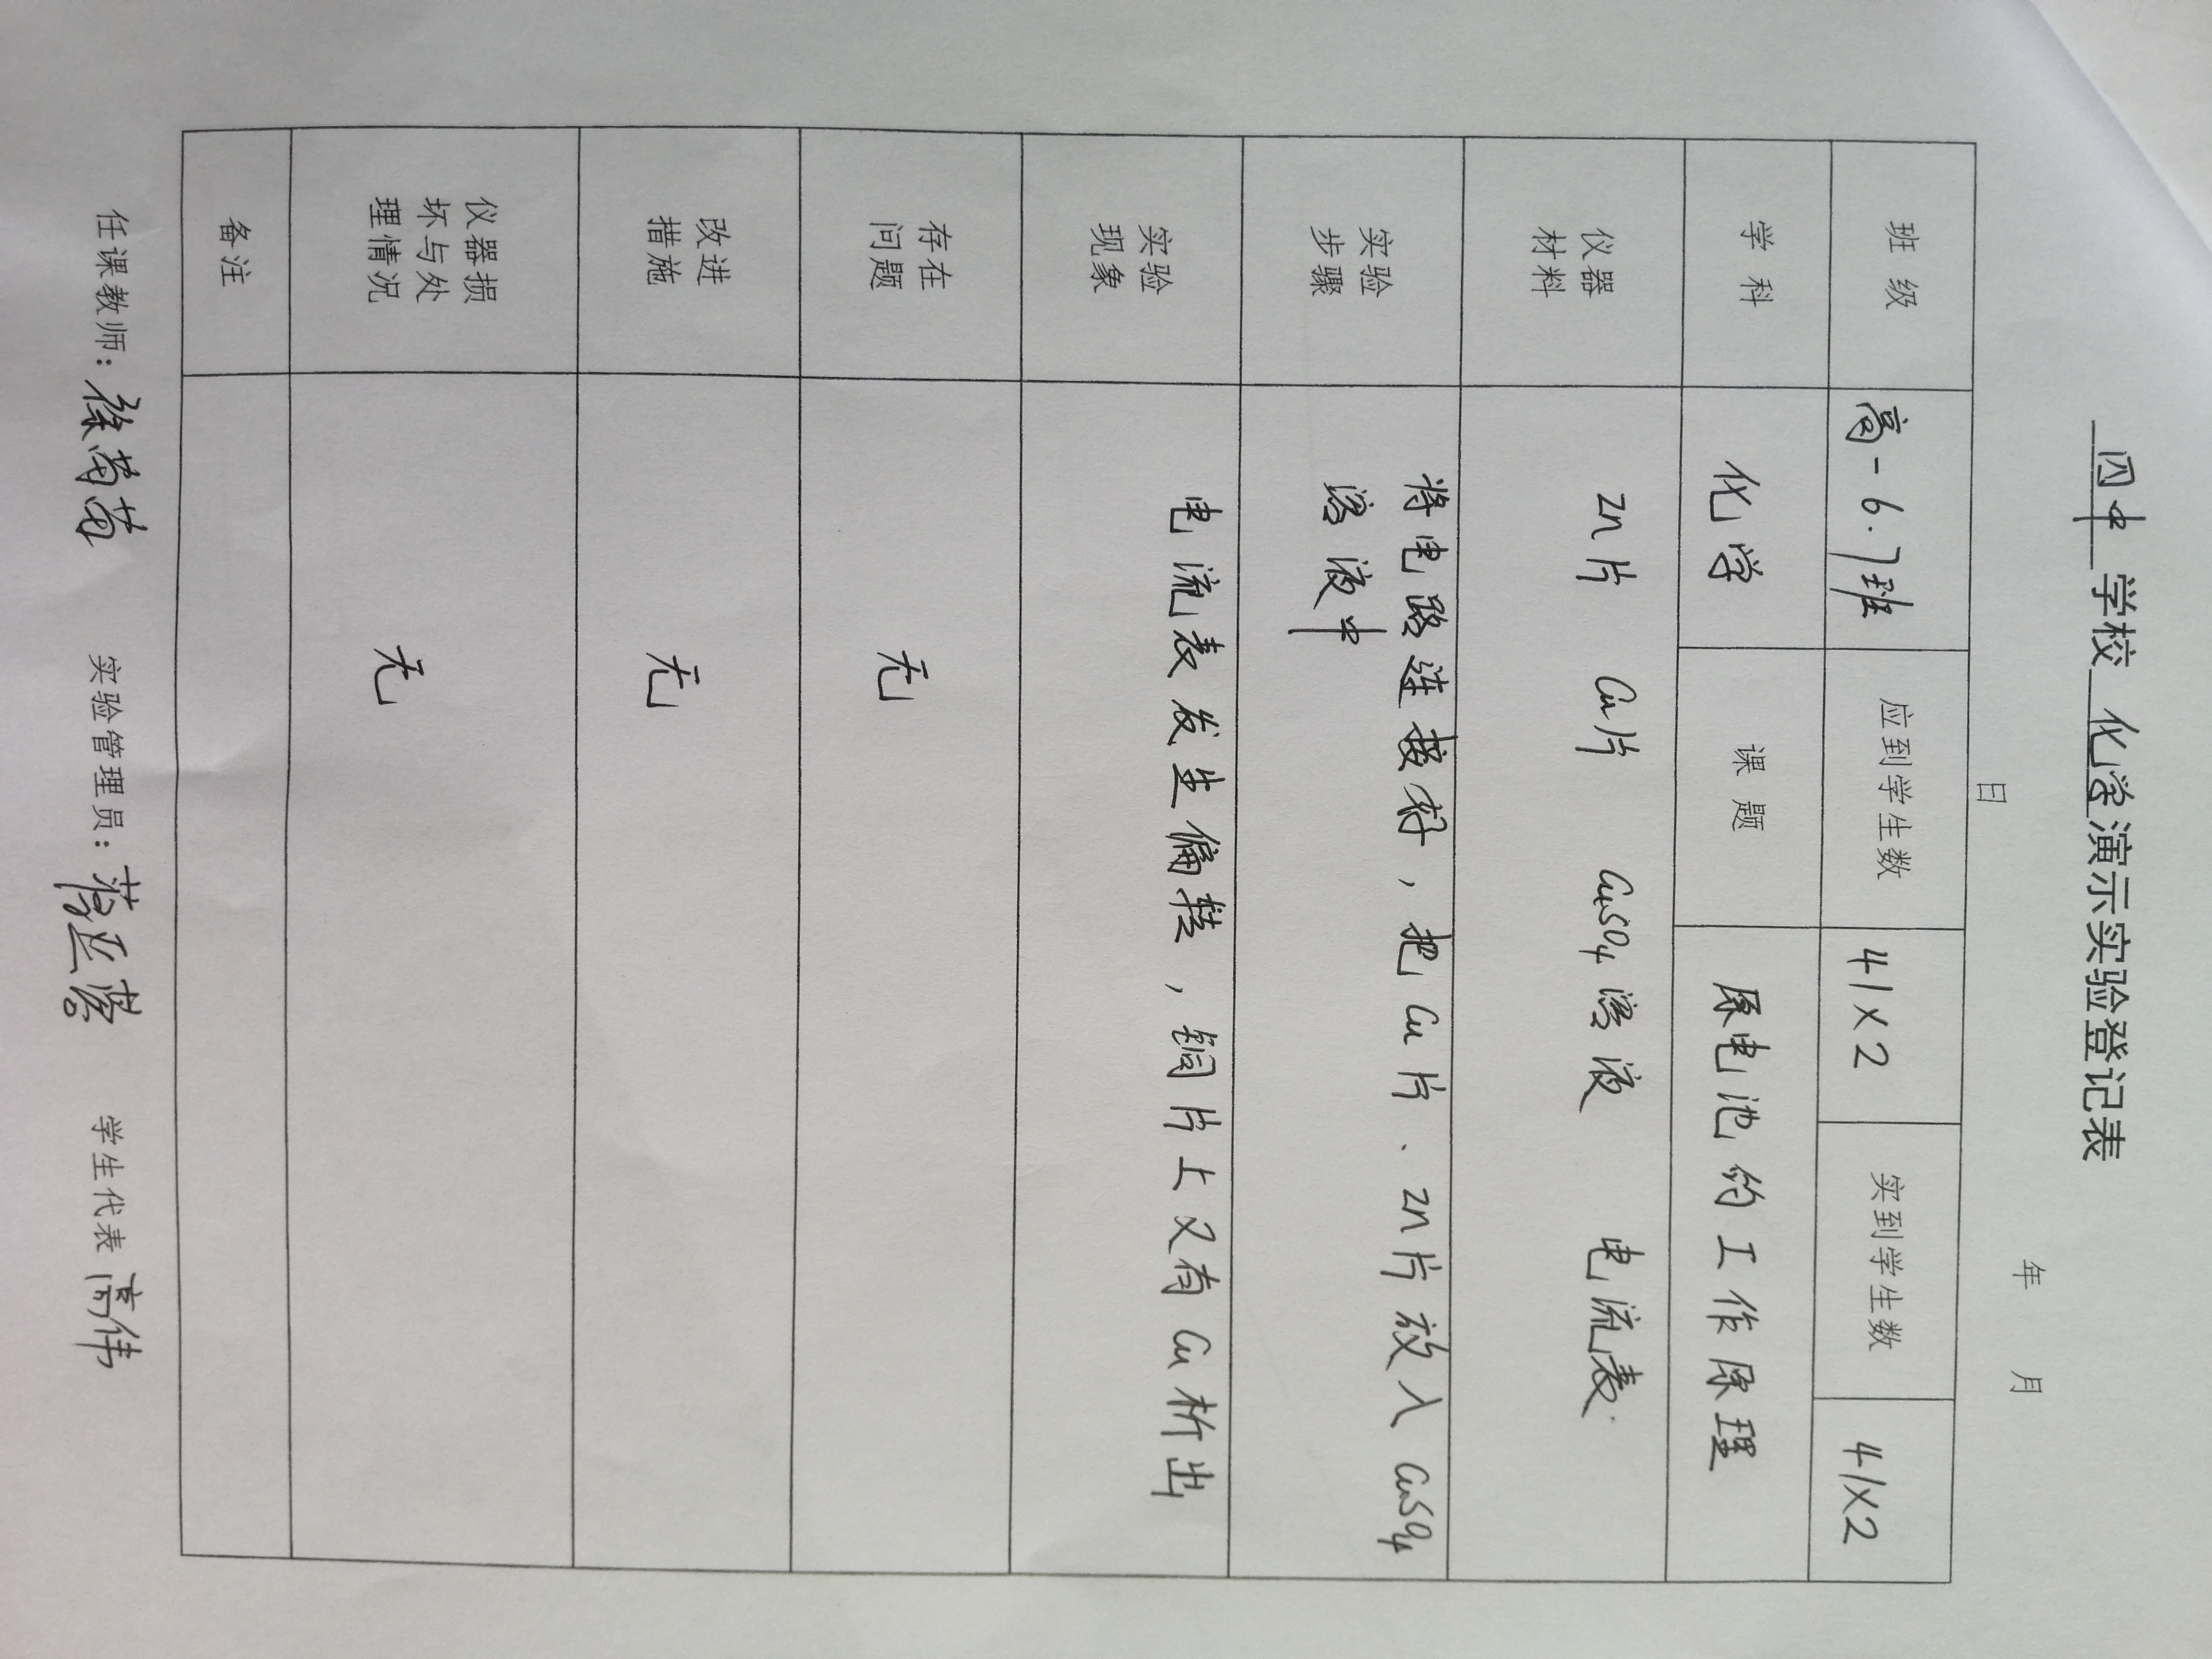 四中 学校 化学 演示实验登记表
年 月
日
班 级 高一6.7班 应到学生数 41×2 实到学生数 41×2
学 科 化学 课 题 原电池的工作原理
仪器 材料 Zn片 Cu片 CuSO4溶液 电流表
实验 步骤 将电路连接好，把Cu片、Zn片放入CuSO4
溶液中
实验 现象 电流表发生偏转，铜片上又有Cu析出
存在 问题 无
改进 措施 无
仪器损 坏与处 理情况 无
备注
任课教师： 徐菊菊 实验管理员： 蒋亚 学生代表 高伟